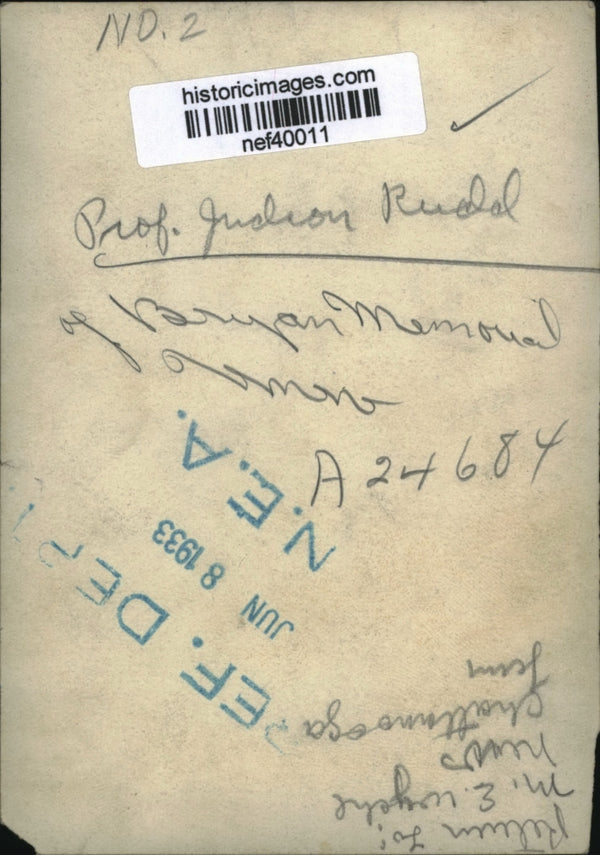 NO. 2
historicimages.com
nef40011
Prof. Judson Rudd
of Bryan Memorial
A 24684
N.E.A.
JUN 8 1933
REF. DEPT.
Return to:
M. E. Wyche
News
Chattanooga
Tenn